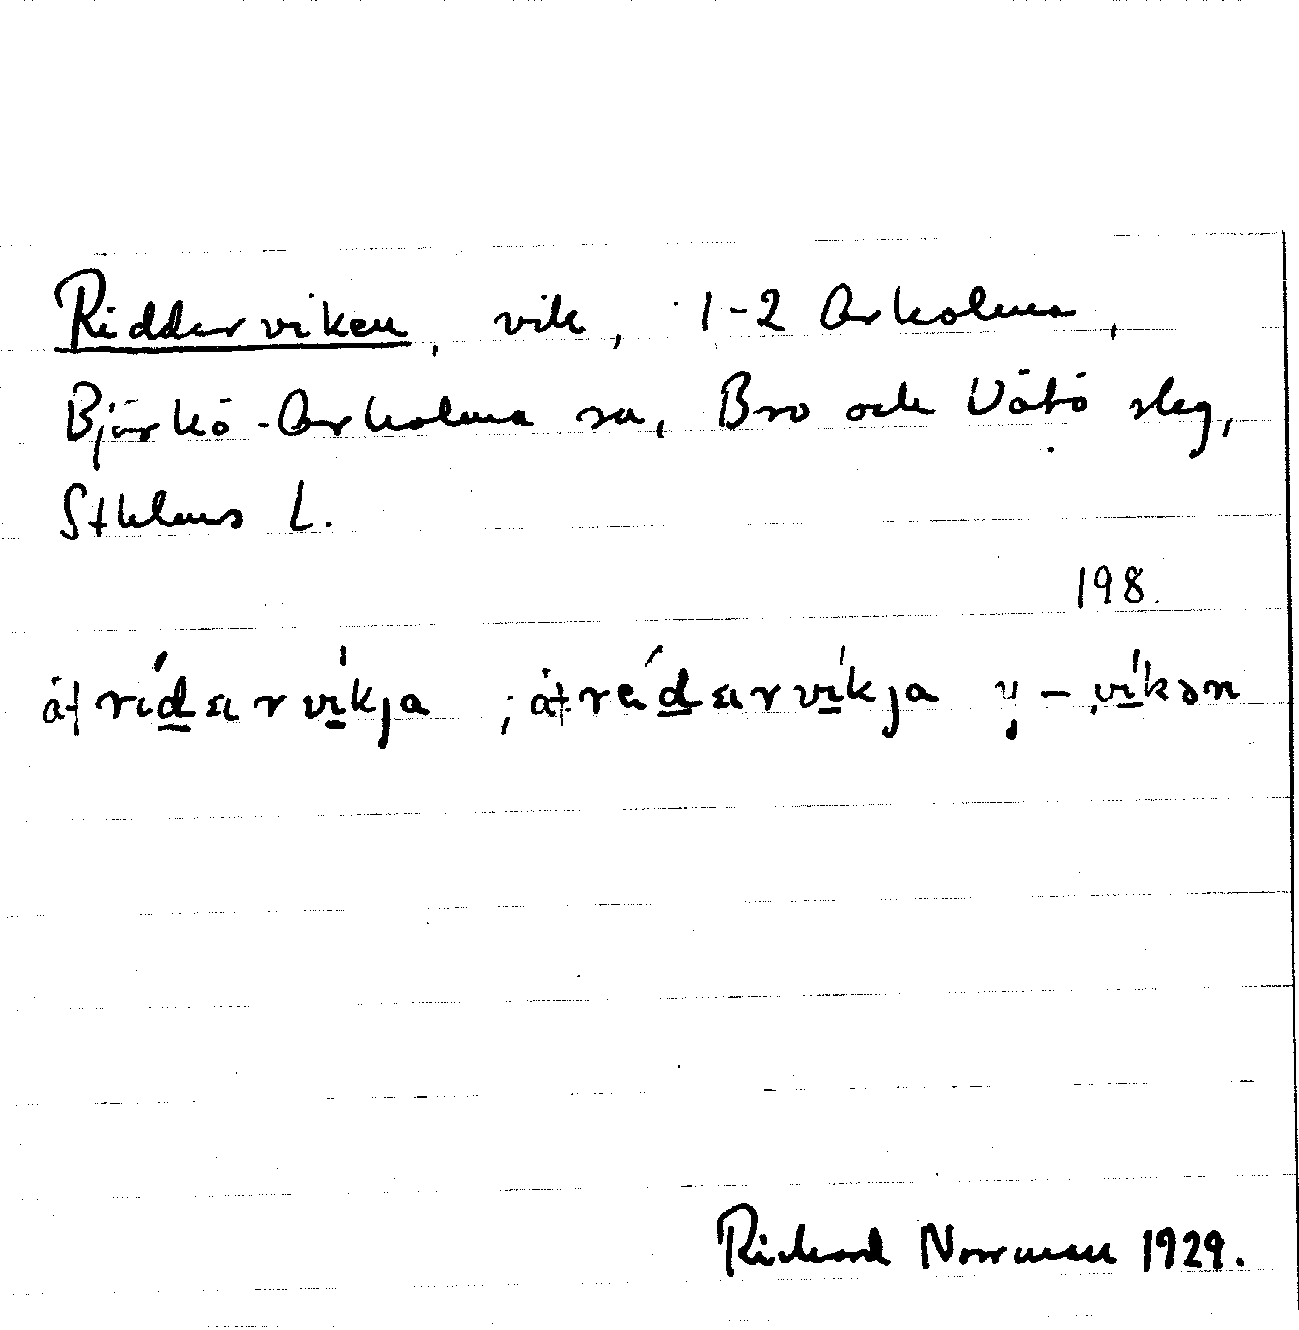 Ridderviken, vik, 1-2 Arholma,
Björkö-Arholma sn, Bro och Vätö slag,
Sthlms L.
198.
åt rídarvíkja ; åt rédarvíkja y – víkən
Rickard Norrman 1929.